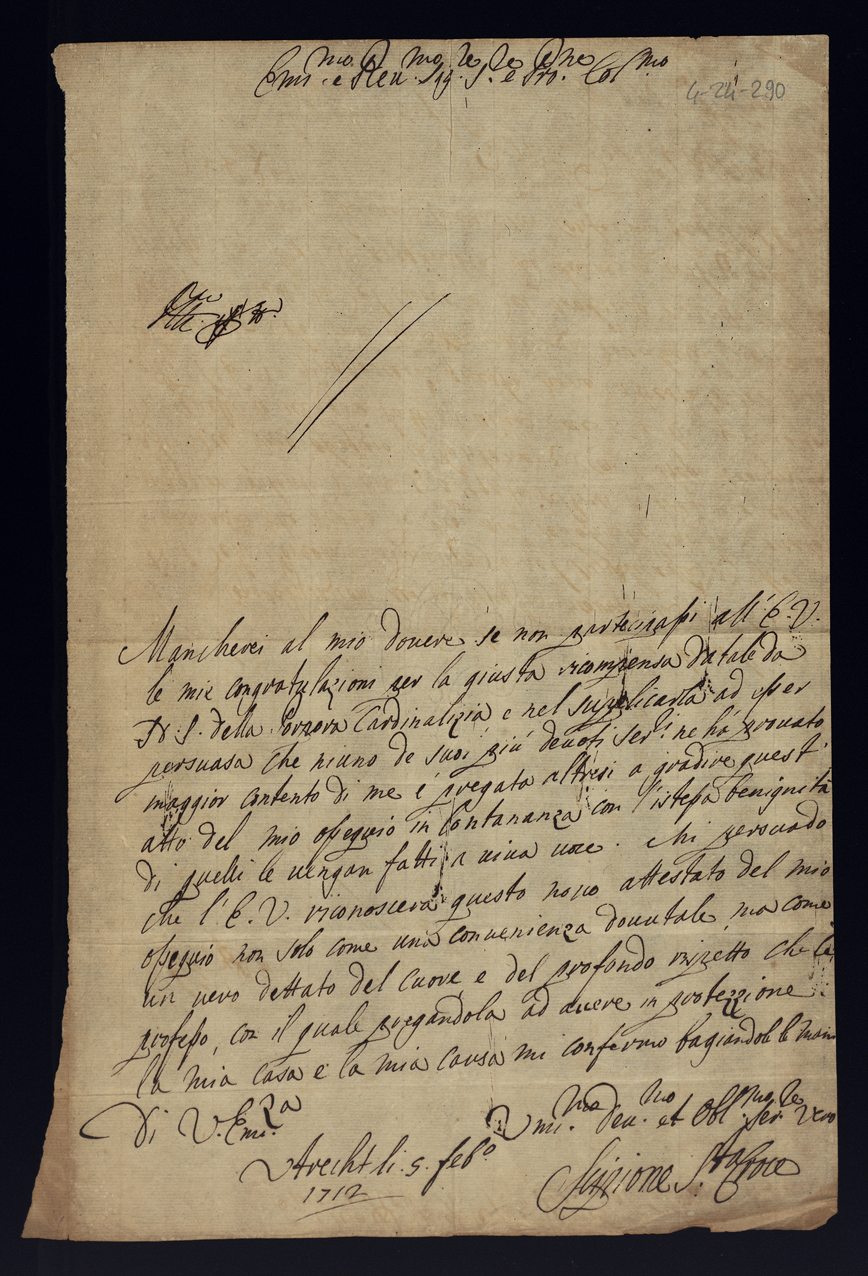 Emi.mo e Reu.mo Sig.re S.re e Pro.ne Col.mo
4-24-290
Mancherei al mio douere se non partecipassi all' E.V.
le mie congratulazioni per la giusta ricompensa datale da
N. S. della Porpora Cardinalizia e nel supplicarla ad esser
persuasa che niuno de suoi più deuoti ser.i ne hà prouato
maggior contento di me è pregata altresi a gradire quest'
atto del mio ossequio in lontananza con l'istessa benignità
di quelli le uengan fatti a uiua uoce. Mi persuado
che l'E.V. riconoscerà questo nouo attestato del mio
ossequio non solo come una conuenienza douutale, ma come
un uero dettato del cuore e del profondo rispetto che le
professo, con il quale pregandola ad auere in protezzione
la mia casa e la mia causa mi confermo bagiandole le mani
Di V. Emi.za
Vmi.mo deu.mo et Obl.mo ser.re uero
Vtrecht li. 5. feb.o
1712
Scipione S.ta Croce